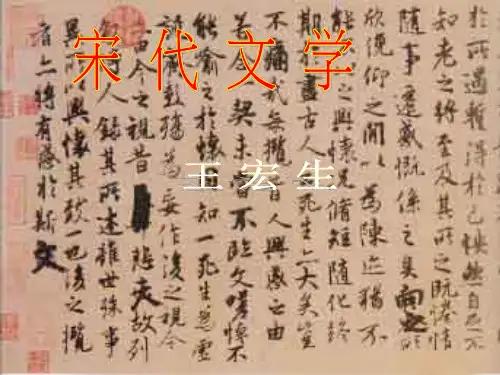 宋代文学
王宏生
於所遇蹔得於己怏然自足不
知老之將至及其所之既惓情
隨事遷感慨係之矣向之所
欣俛仰之閒以為陳迹猶不
能之興懷況脩短隨化終
期於盡古人死生亦大矣豈
不痛哉每攬昔人興感之由
若合一契未嘗不臨文嗟悼不
能喻之於懷固知一死生為虛
誕齊彭殤為妄作後之視今
由今之視昔悲夫故列
人錄其所述雖世殊事
異所以興懷其致一也後之攬
者亦將有感於斯文